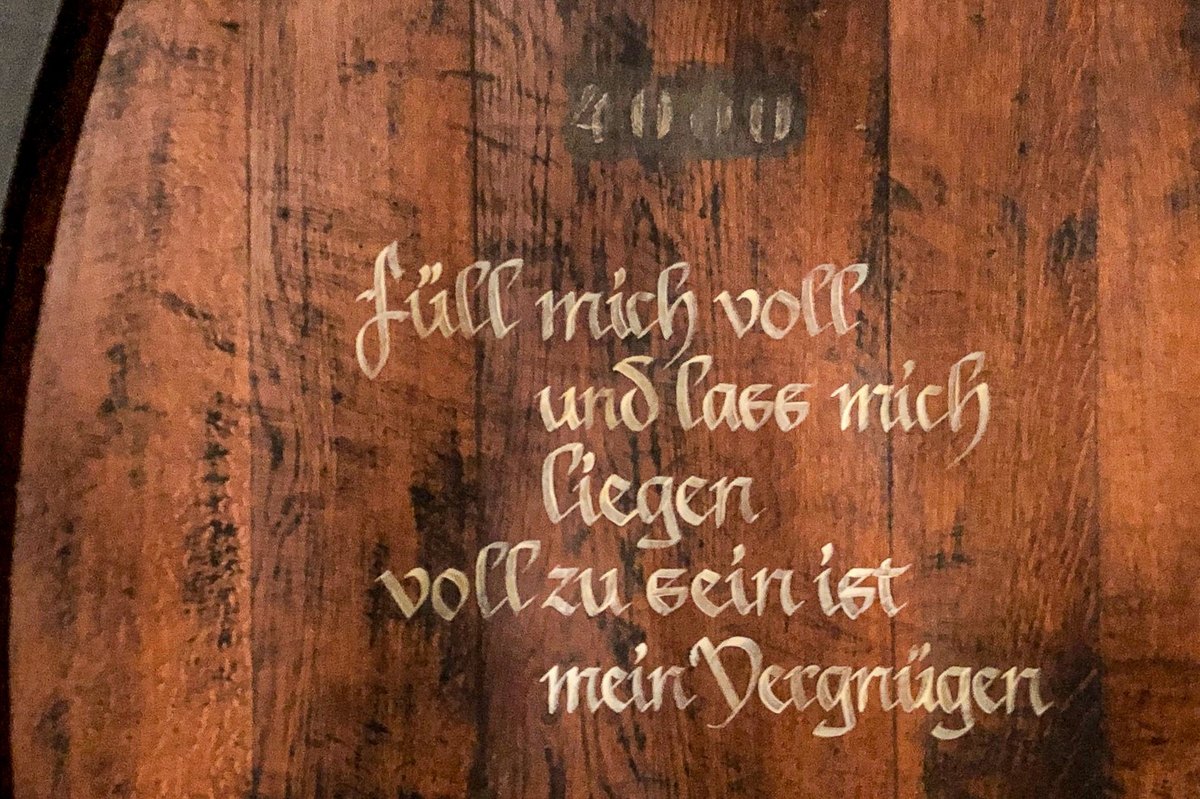 4000
füll mich voll
und lass mich
liegen
voll zu sein ist
mein Vergnügen